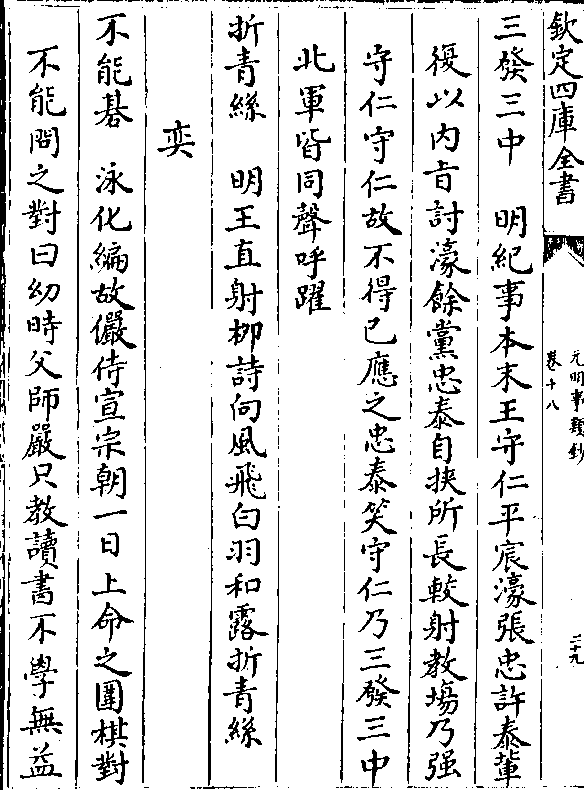 欽定四庫全書
元明事類鈔
卷十八
二十九
三發三中　明紀事本末王守仁平宸濠張忠許泰輩
復以内旨討濠餘黨忠泰自挾所長較射教場乃强
守仁守仁故不得已應之忠泰笑守仁乃三發三中
北軍皆同聲呼躍
折青絲　明王直射栁詩向風飛白羽和露折青絲
奕
不能棊　泳化編故儼侍宣宗朝一日上命之圍棋對
不能問之對曰幼時父師嚴只教讀書不學無益